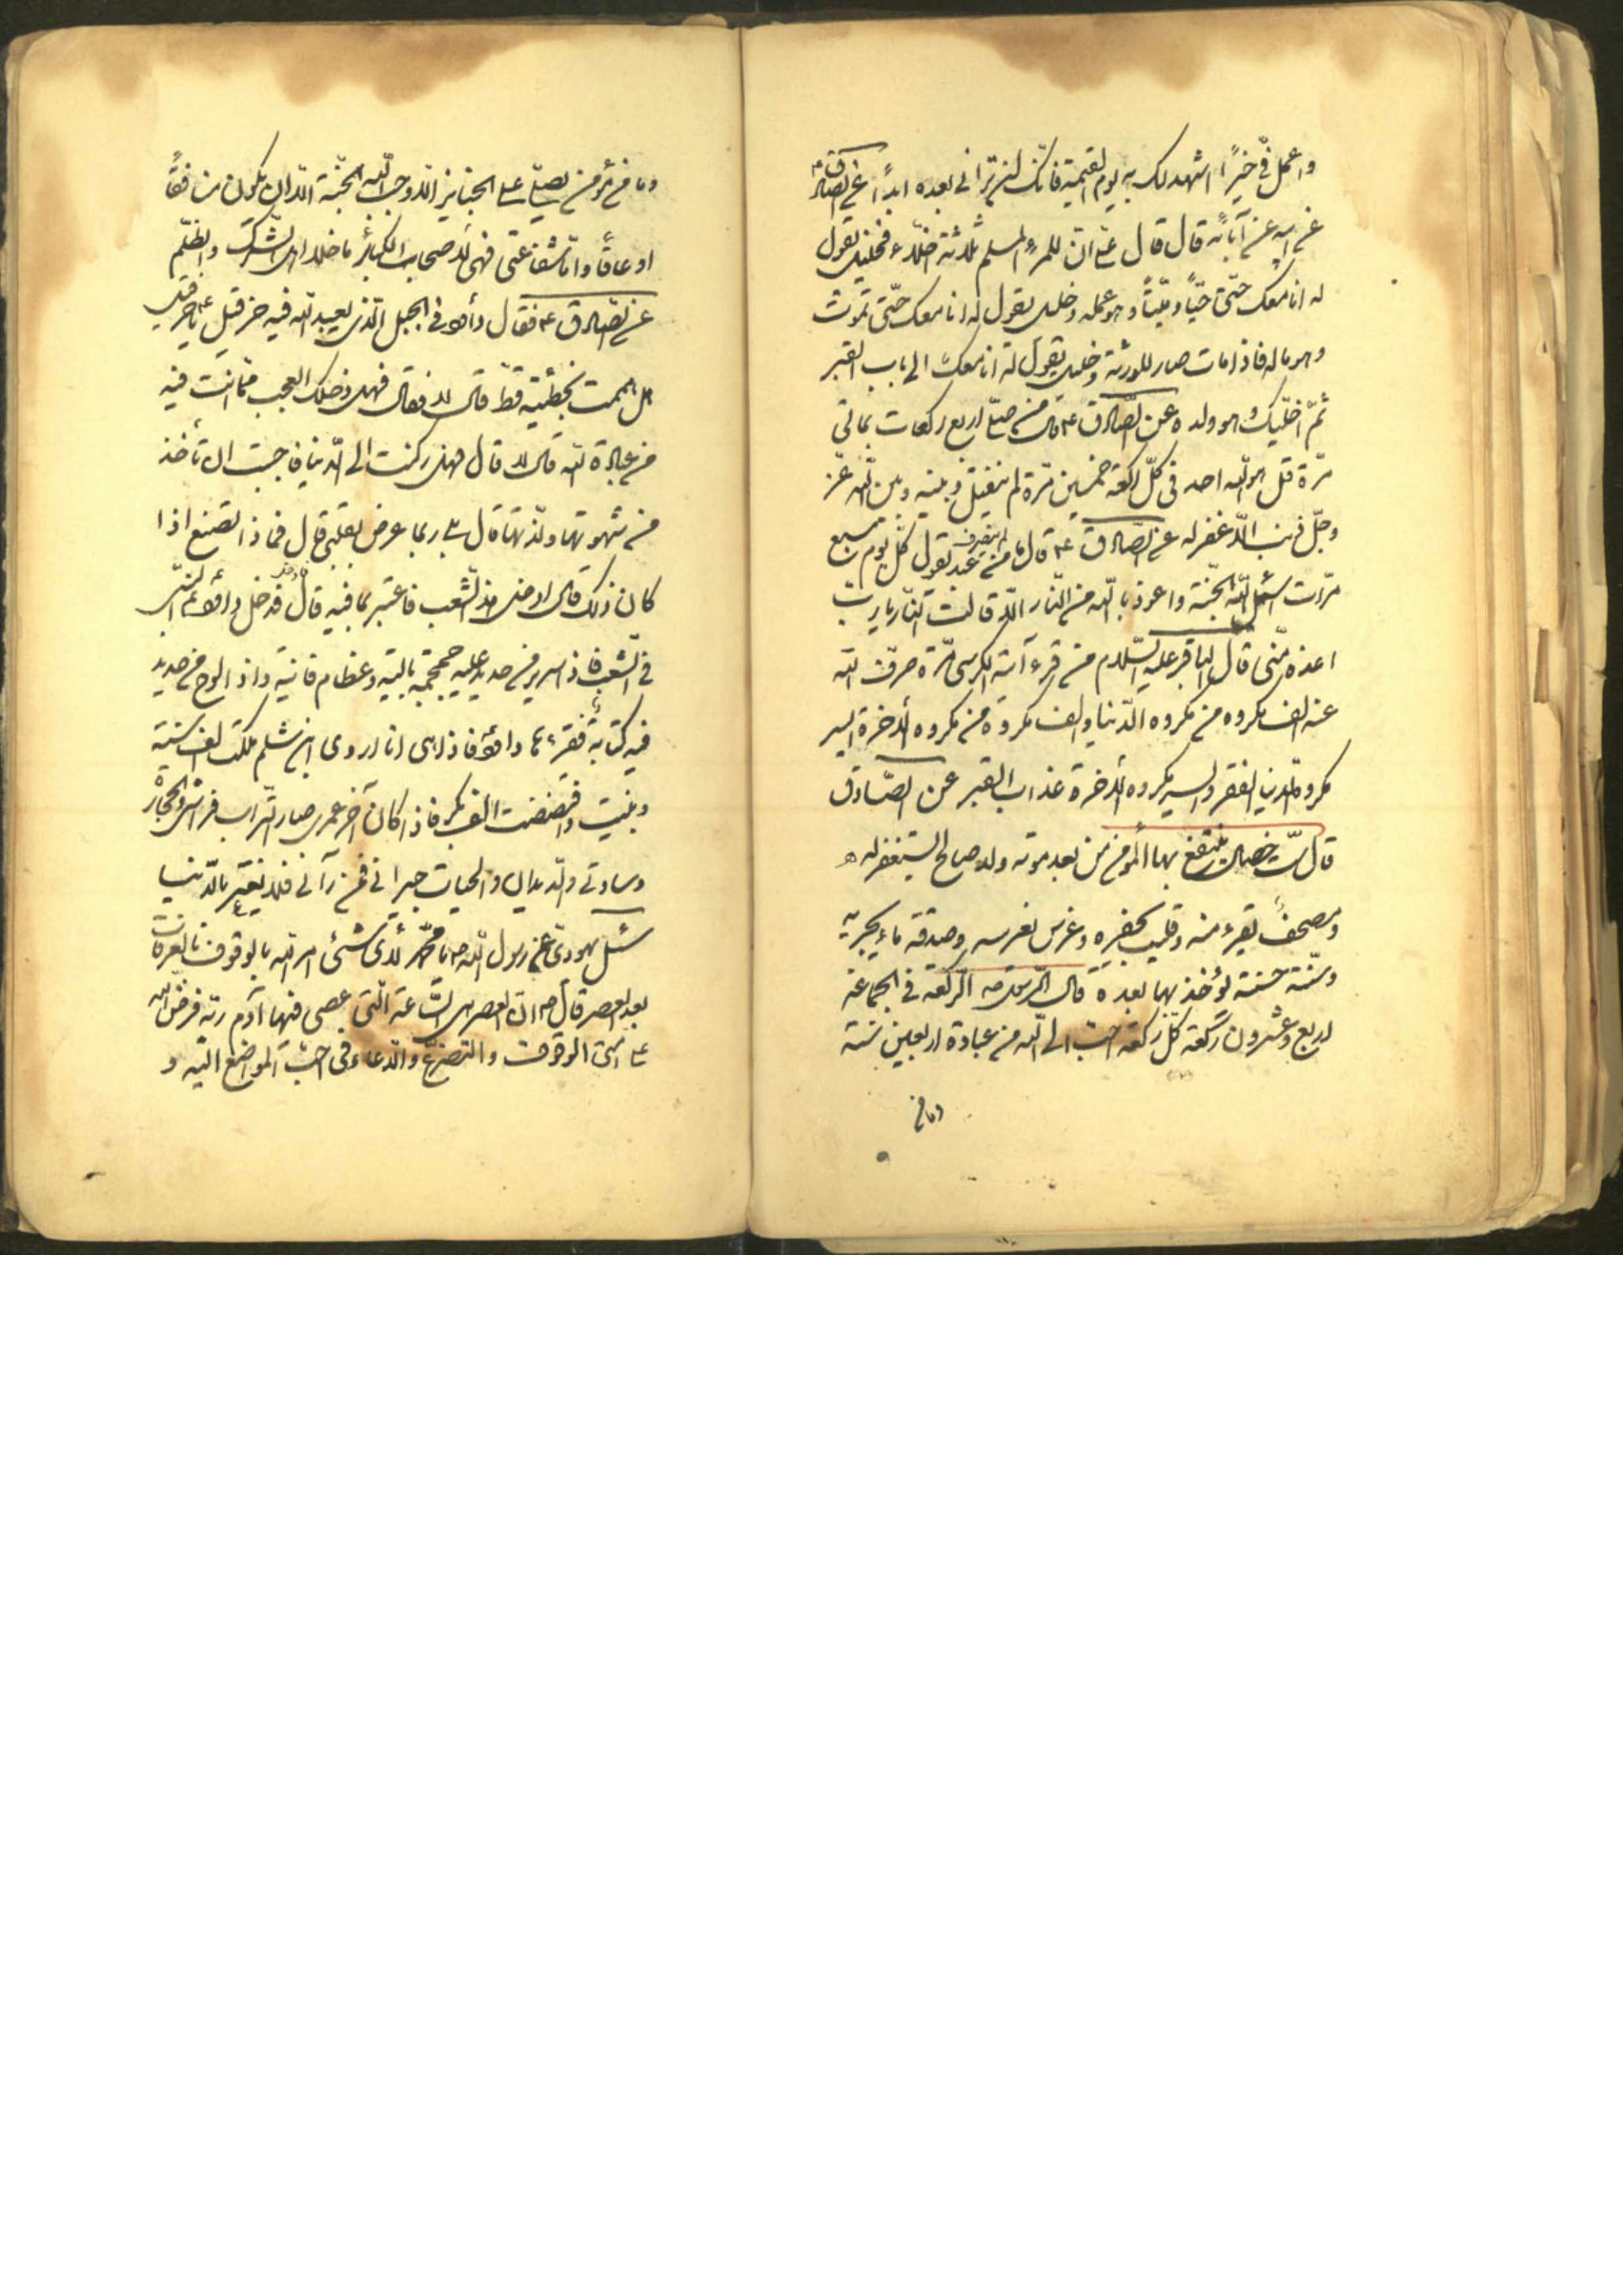 واعمل فیّ خیرًا اشهد لک به یوم القیمة فانّک لن ترانی بعده ابدًا عن الصادق ع
عن ابیه عن آبائه قال قال علی انّ للمرء المسلم ثلاثة اخلّاء فخلیل یقول
له انا معک حتی حیّاً ومیّتاً وهو عمله وخلیل یقول له انا معک حتّی تموت
وهو ماله فاذا مات صار للورثة وخلیل یقول له انا معک الی باب القبر
ثمّ اخلّیک وهو ولده وعن الصّادق ع قال من صلّی اربع رکعات بمائتی
مرّة قل هو الله احد فی کلّ رکعة خمسین مرّة لم ینفتل وبینه وبین الله عزّ
وجلّ ذنب الّا غفر له عن الصّادق ع قال ما من عبد یقول کلّ یوم سبع
مرّات اسئل الله الجنّة واعوذ بالله من النّار الّا قالت النّار یا ربّ
اعذه منّی قال الباقر علیه السّلام من قرء آیة الکرسی مرّة صرف الله
عنه الف مکروه من مکروه الدّنیا والف مکروه من مکروه الآخرة ایسر
مکروه الدنیا الفقر وایسر مکروه الآخرة عذاب القبر عن الصّادق
قال ستّ خصال ینتفع بها المؤمن من بعد موته ولد صالح یستغفر له
ومصحف یقرء منه وقلیب یحفره وغرس یغرسه وصدقة ماء یجریه
وسنّة حسنة یؤخذ بها بعده قال الرسول ص الرکعة فی الجماعة
اربع وعشرون رکعة کلّ رکعة احبّ الی الله من عبادة اربعین سنة
وما من
وما من مؤمن یصلّی علی الجنایز الّا اوجب الله له الجنّة الّا ان یکون منافقًا
او عاقًا وامّا شفاعتی فهی لاصحاب الکبائر ما خلا اهل الشرک والظلم
عن الصّادق ع فقال داود فی الجبل الّذی یعبد الله فیه حزقیل ع یا حزقیل
هل هممت بخطیئة قطّ قال لا فقال فهل دخلک العجب ممّا انت فیه
من عبادة الله قال لا قال فهل رکنت الی الدّنیا فاحببت ان تأخذ
من شهوتها ولذّتها قال بلی ربما عرض بقلبی قال فماذا تصنع اذا
کان ذلک قال ادخل هذا الشّعب فاعتبر بما فیه قال فدخل داود ع النبی
فی الشّعب فاذا سریر من حدید علیه جمجمة بالیة وعظام فانیة واذا لوح من حدید
فیه کتابة فقرءها داود فاذا هی انا اروی ابن شلم ملکت الف سنة
وبنیت وافتضضت الف بکر فاذا کان آخر عمری صار التّراب فراشی والحجارة
وسادتی والدّیدان والحیات جیرانی فمن رآنی فلا یغترّ بالدّنیا
سئل یهودیّ عن رسول الله ص یا محمّد لایّ شئ امر الله بالوقوف بالعرفات
بعد العصر قال ص انّ العصر هی السّاعة الّتی عصی فیها آدم ربّه ففرض الله
علی امّتی الوقوف والتضرّع والدّعاء فی احبّ المواضع الیه و